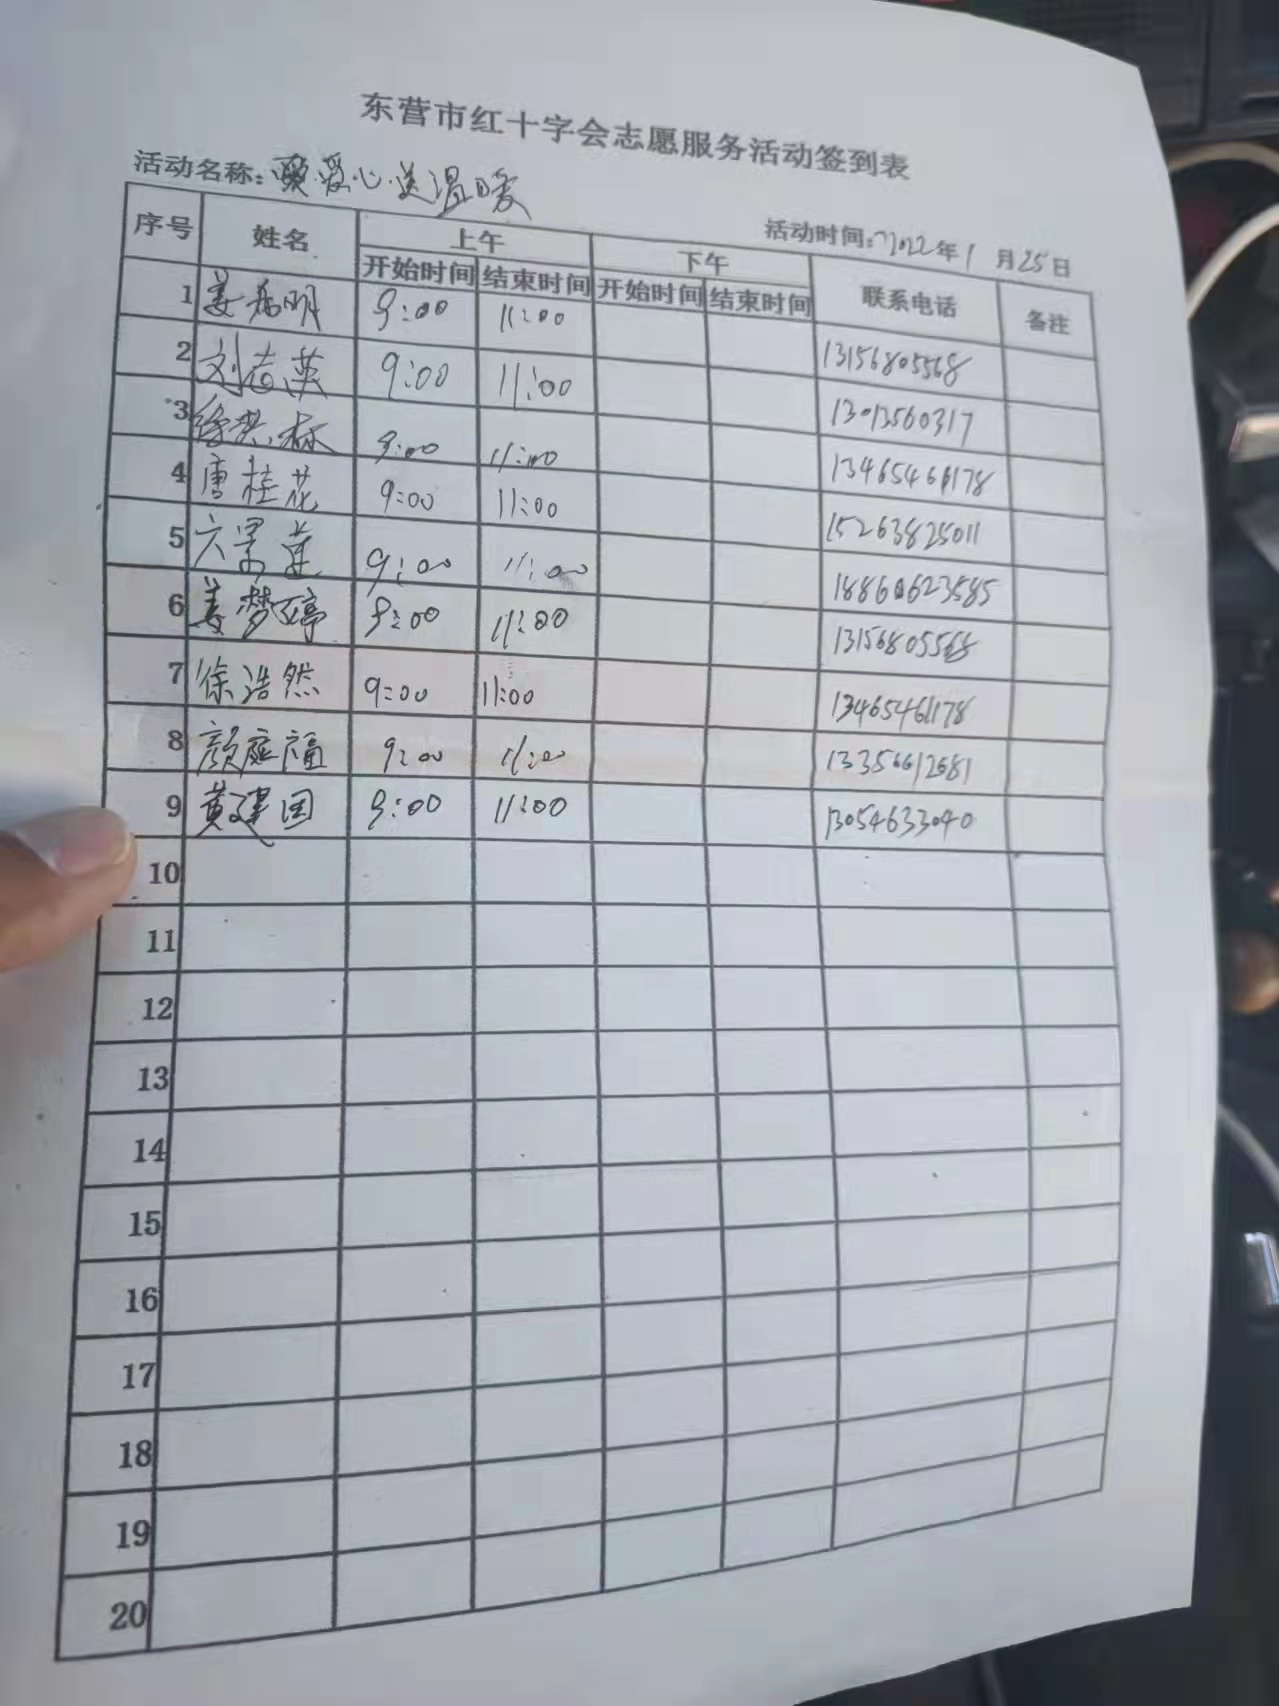 东营市红十字会志愿服务活动签到表
活动名称:爱心送温暖
活动时间:2022年1月25日
序号 姓名 上午 下午 联系电话 备注
开始时间 结束时间 开始时间 结束时间
1 姜 明 9:00 11:00 13156805568
2 刘志英 9:00 11:00 13013560317
3 徐洪林 9:00 11:00 13465461178
4 唐桂花 9:00 11:00 15263825011
5 9:00 11:00 18860623585
6 姜梦婷 9:00 11:00 13156805568
7 徐浩然 9:00 11:00 13465461178
8 颜庭福 9:00 11:00 13356612681
9 黄建国 9:00 11:00 13054633040
10
11
12
13
14
15
16
17
18
19
20